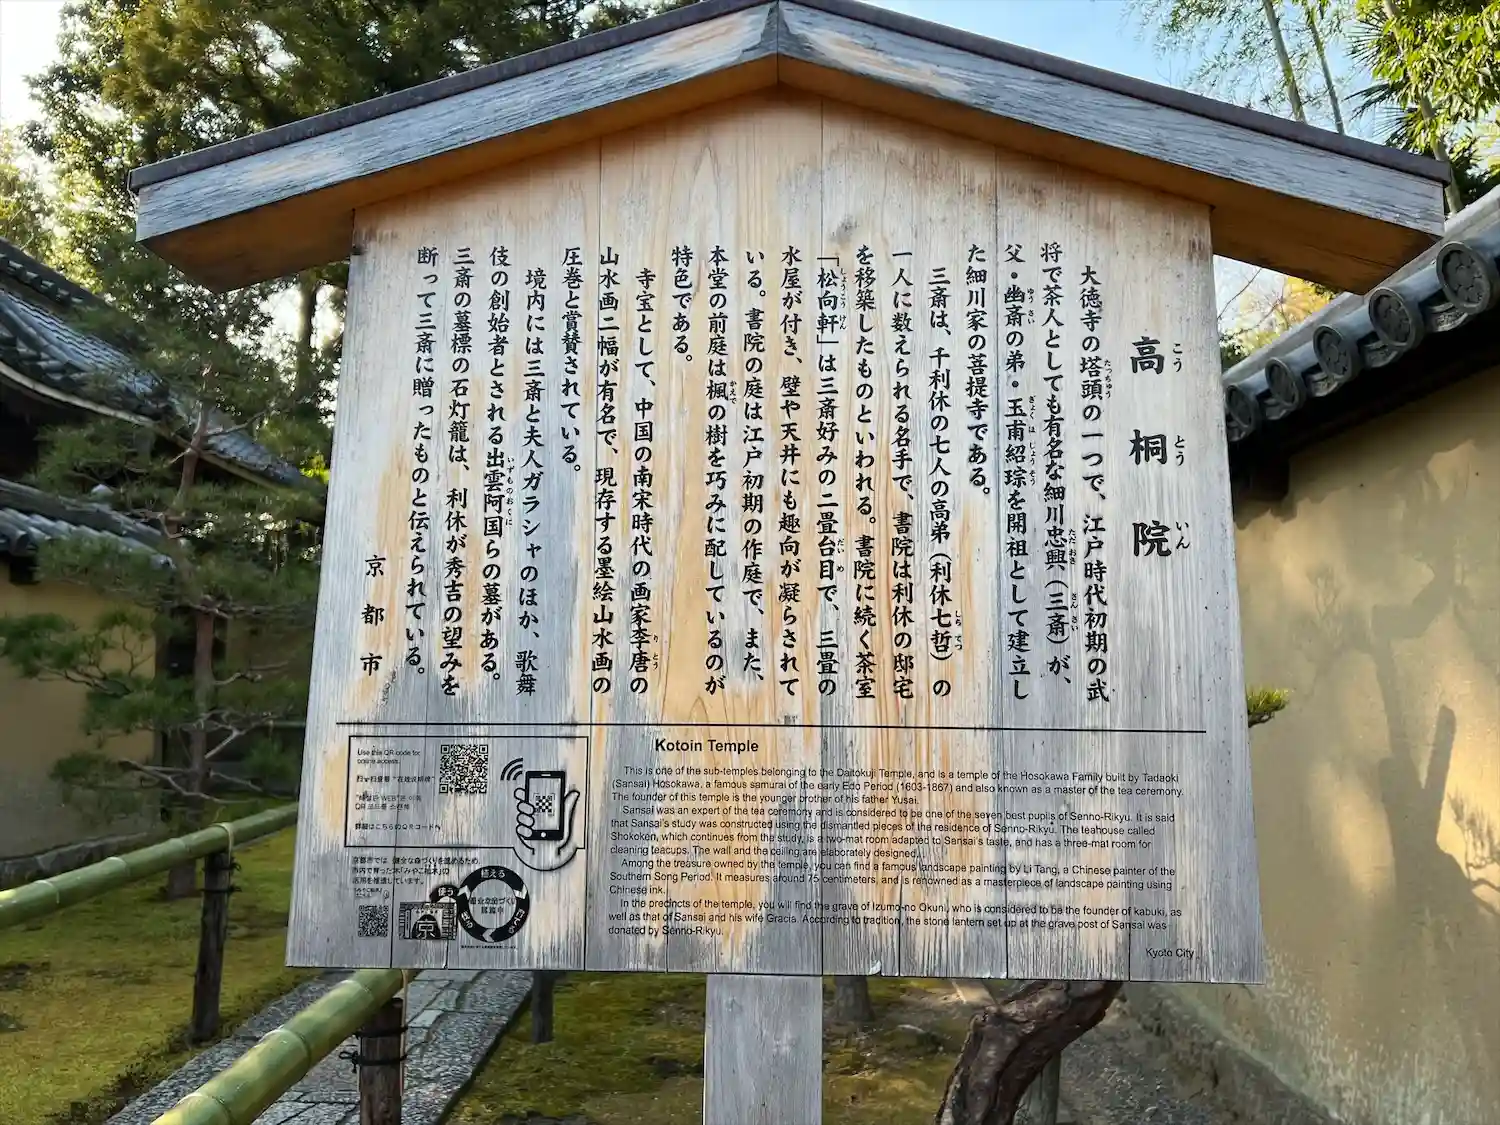 高桐院
こうとういん
大徳寺の塔頭の一つで、江戸時代初期の武
たっちゅう
将で茶人としても有名な細川忠興（三斎）が、
ただおき
さんさい
父・幽斎の弟・玉甫紹琮を開祖として建立し
ゆうさい
ぎょくほじょうそう
た細川家の菩提寺である。
三斎は、千利休の七人の高弟（利休七哲）の
しちてつ
一人に数えられる名手で、書院は利休の邸宅
を移築したものといわれる。書院に続く茶室
「松向軒」は三斎好みの二畳台目で、三畳の
しょうこうけん
だいめ
水屋が付き、壁や天井にも趣向が凝らされて
いる。書院の庭は江戸初期の作庭で、また、
本堂の前庭は楓の樹を巧みに配しているのが
かえで
特色である。
寺宝として、中国の南宋時代の画家李唐の
りとう
山水画二幅が有名で、現存する墨絵山水画の
圧巻と賞賛されている。
境内には三斎と夫人ガラシャのほか、歌舞
伎の創始者とされる出雲阿国らの墓がある。
いずものおくに
三斎の墓標の石灯籠は、利休が秀吉の望みを
断って三斎に贈ったものと伝えられている。
京都市
Use this QR code for
online access.
扫一扫查看“在线说明牌”
詳細はこちらのQRコードへ
京都市では、健全な森づくりを進めるため、
市内で育った木「みやこ杣木」の
活用を推進しています。
植える
使う
京
Kotoin Temple
This is one of the sub-temples belonging to the Daitokuji Temple, and is a temple of the Hosokawa Family built by Tadaoki
(Sansai) Hosokawa, a famous samurai of the early Edo Period (1603-1867) and also known as a master of the tea ceremony.
The founder of this temple is the younger brother of his father Yusai.
Sansai was an expert of the tea ceremony and is considered to be one of the seven best pupils of Senno-Rikyu. It is said
that Sansai's study was constructed using the dismantled pieces of the residence of Senno-Rikyu. The teahouse called
Shokoken, which continues from the study, is a two-mat room adapted to Sansai's taste, and has a three-mat room for
cleaning teacups. The wall and the ceiling are elaborately designed.
Among the treasure owned by the temple, you can find a famous landscape painting by Li Tang, a Chinese painter of the
Southern Song Period. It measures around 75 centimeters, and is renowned as a masterpiece of landscape painting using
Chinese ink.
In the precincts of the temple, you will find the grave of Izumo-no Okuni, who is considered to be the founder of kabuki, as
well as that of Sansai and his wife Gracia. According to tradition, the stone lantern set up at the grave post of Sansai was
donated by Senno-Rikyu.
Kyoto City